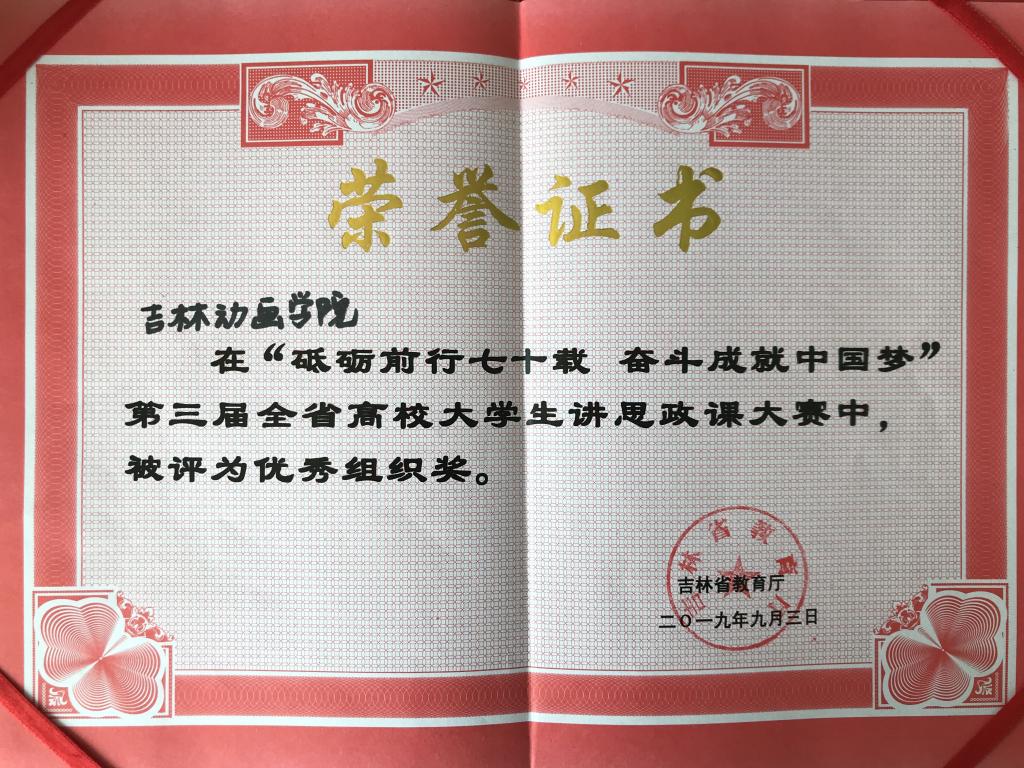 荣誉证书
吉林动画学院
在“砥砺前行七十载 奋斗成就中国梦”
第三届全省高校大学生讲思政课大赛中，
被评为优秀组织奖。
吉林省教育厅
吉林省教育厅
二〇一九年九月三日